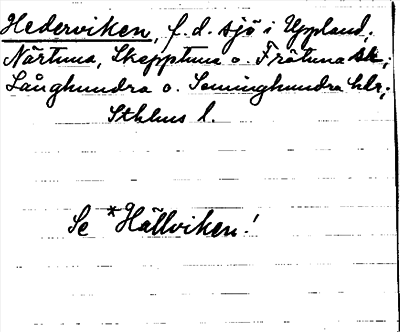 Hederviken, f.d. sjö i Uppland;
Närtuna, Skepptuna o. Frötuna sk;
Långhundra o. Seminghundra hdr;
Sthlms l.
Se *Hållviken!